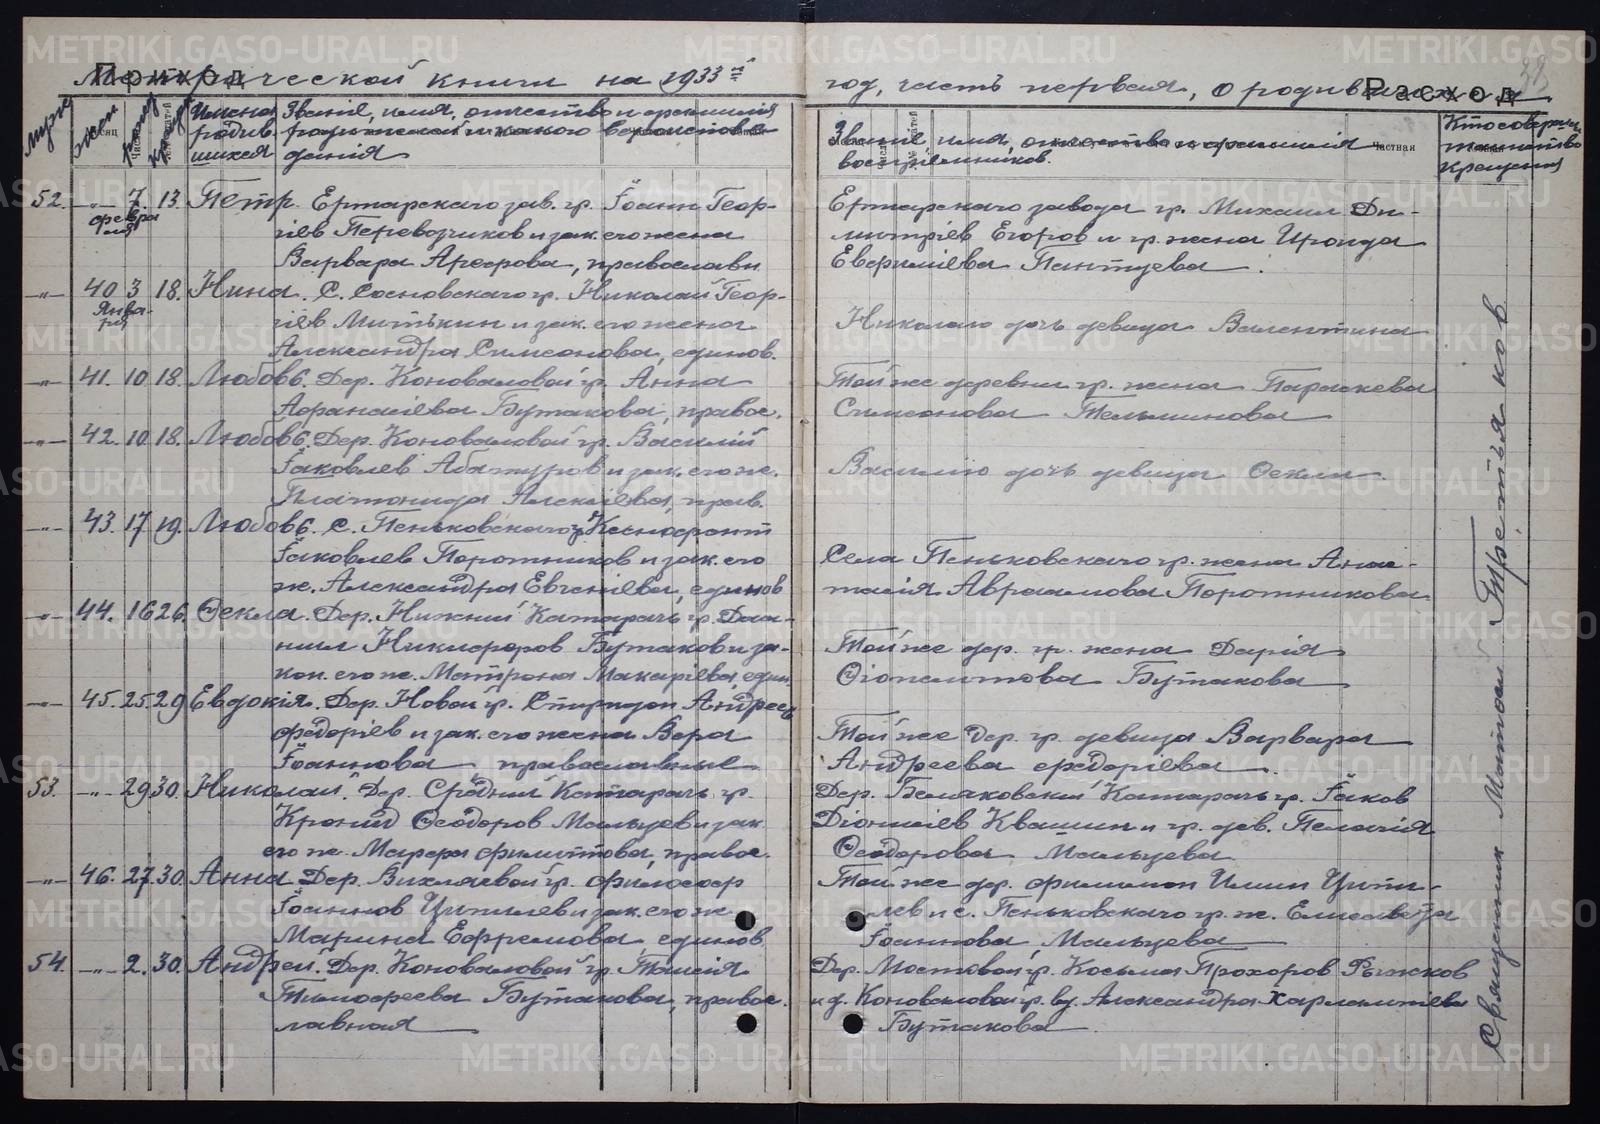 Метрической книги на 1933 й год, часть первая, о родившихся
Приход
Расход
38
муж.
жен
рожд.
крещ.
Имена родив- шихся
Званіе, имя, отчество и фамилія
родителей и какого вероисповѣ-
данія
Званіе, имя, отчество и фамилія
воспріемников.
Частная
Кто совершал
таинство
крещения
52. -"- 7. 13. Петр. Ертарскаго зав. гр. Іоанн Геор-
февра
ля
гіев Перевозчиков и зак. его жена
Варвара Арефрова, православн
Ертарскаго завода гр. Михаил Ди-
митріев Егоров и гр. жена Ироида
Евфиміева Пантуева.
-"- 40 3 18. Нина. С. Сосновскаго гр. Николай Геор-
Янва-
ря
гіев Митькин и зак. его жена
Александра Симеонова, единов.
Николаю дочь девица Валентина
-"- 41. 10 18. Любовь. Дер. Коноваловой гр. Анна
Афанасіева Бутакова, правос.
Той же деревни гр. жена Параскева
Симеонова Тельминова
-"- 42. 10. 18. Любовь. Дер. Коноваловой гр. Василій
Іаковлев Абатуров и зак. его ж.
Платонида Алексіева, прав.
Василію дочь девица Фекла.
-"- 43. 17. 19. Любовь. С. Пеньковскаго гр. Ксенофонт
Іаковлев Поротников и зак. его
ж. Александра Евгеніева, единов
Села Пеньковскаго гр. жена Анас-
тасія Авраамова Поротникова.
-"- 44. 16 26. Фекла. Дер. Нижній Катарач гр. Дан-
ниил Никифоров Бутаков и за-
кон. его ж. Матрона Макаріева, един.
Той же дер. гр. жена Дарія
Фіопемптова Бутакова
-"- 45. 25. 29 Евдокія. Дер. Новой гр. Спиридон Андреев
Федоріев и зак. его жена Вера
Іоаннова православные
Той же дер. гр. девица Варвара
Андреева Федоріева
53. -"- 29 30. Николай. Дер. Средній Катарачь гр.
Кронид Феодоров Мальцев и зак
его ж. Марфа Филиппова, правос.
Дер. Беляковскій Катарачь гр. Іаков
Діонисіев Квашнин и гр. дев. Пелагія
Феодорова Мальцева
-"- 46. 27. 30. Анна Дер. Вихляевой гр. Философ
Іоаннов Ципилев и зак. его ж
Марина Ефремова, единов.
Той же дер. Филимон Илиин Ципи-
лев и с. Пеньковскаго гр. ж. Елисавета
Іоаннова Мальцева
54. -"- 2. 30. Андрей. Дер. Коноваловой гр. Таисія
Тимофеева Бутакова, правос.
лавная
Дер. Мостовой гр. Косьма Прохоров Рыжков
и д. Коноваловой гр. вд. Александра Харлампіева
Бутакова
Священник Третьяков
METRIKI.GASO-URAL.RU